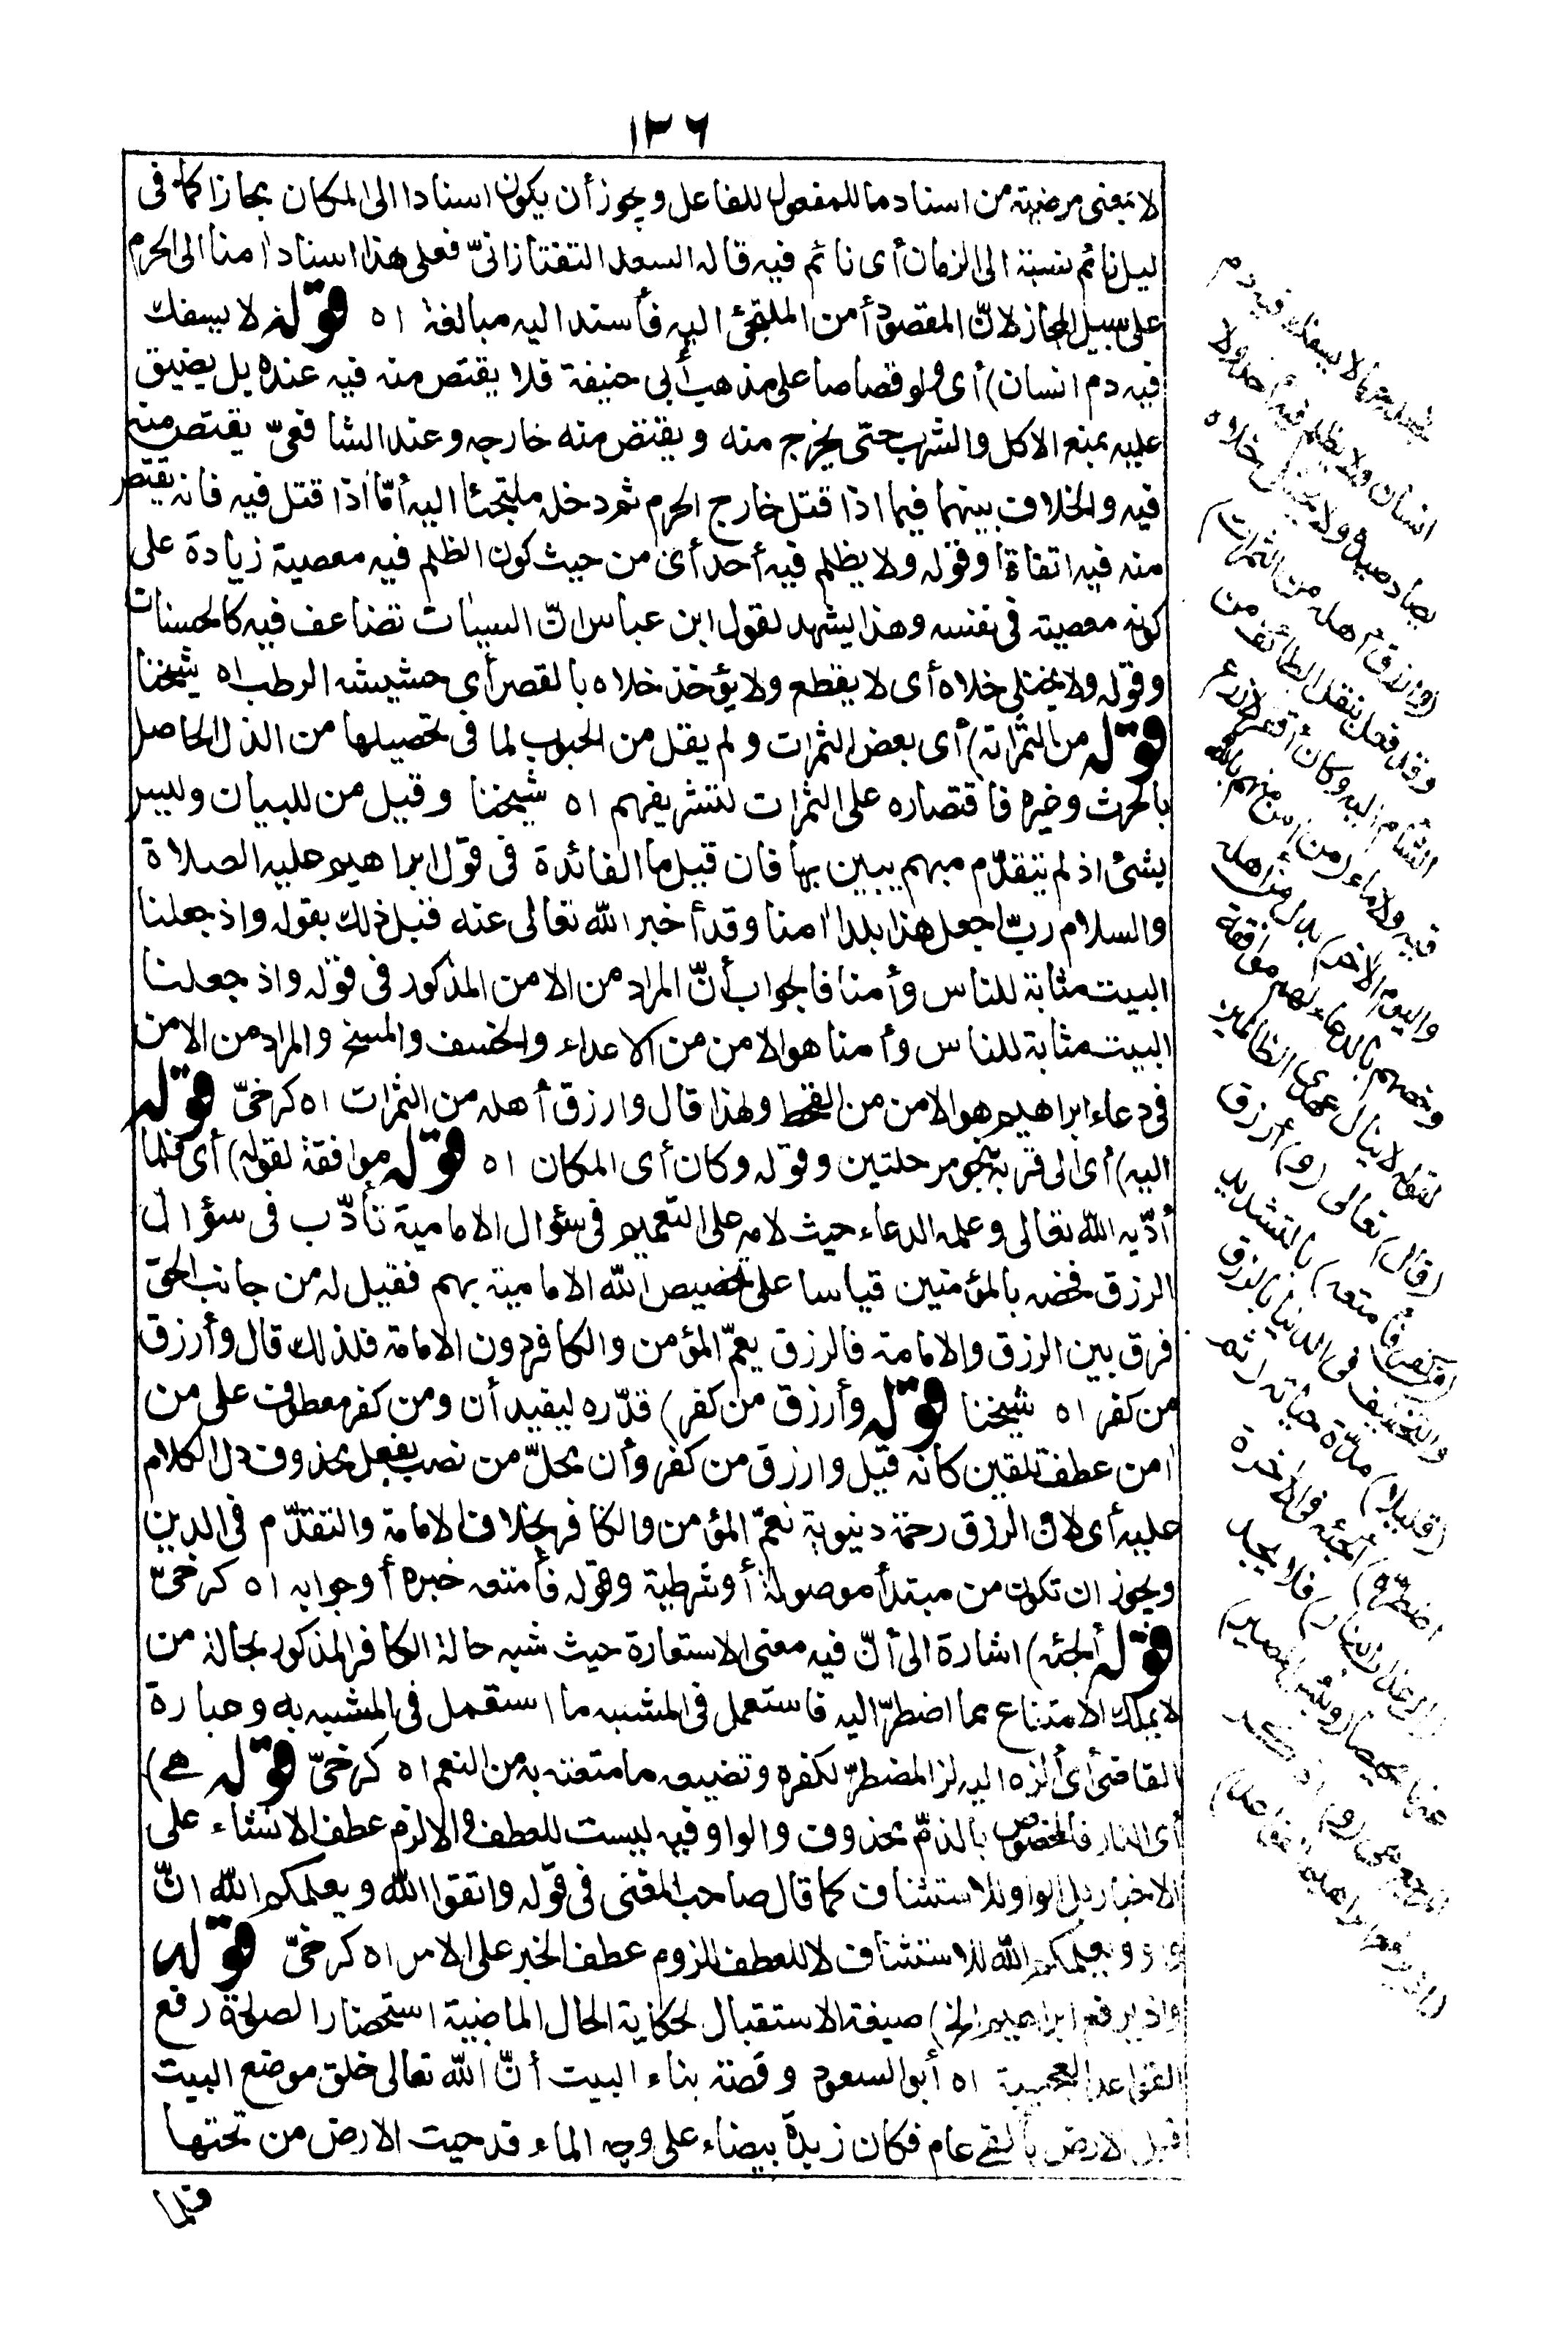 ١٣٦
لا بمعنى مرضية من اسناد ما للمفعول للفاعل ويجوز أن يكون اسنادا الى المكان مجازا كما فى
ليل نائم نسبة الى الزمان أى نائم فيه قاله السعد التفتازانىّ فعلى هذا اسناد آمنا الى الحرم
على سبيل المجاز لانّ المقصود أمن الملتجئ اليه فأسند اليه مبالغة اه قوله لا يسفك
فيه دم انسان) أى ولو قصاصا على مذهب أبى حنيفة فلا يقتص منه فيه عنده بل يضيق
عليه بمنع الاكل والشرب حتى يخرج منه ويقتص منه خارجه وعند الشافعىّ يقتص منه
فيه والخلاف بينهما فيما اذا قتل خارج الحرم ثم دخله ملتجئا اليه أمّا اذا قتل فيه فانه يقتص
منه فيه اتفاقا وقوله ولا يظلم فيه أحد أى من حيث كون الظلم فيه معصية زيادة على
كونه معصية فى نفسه وهذا يشهد لقول ابن عباس انّ السيئات تضاعف فيه كالحسنات
وقوله ولا يختلى خلاه أى لا يقطع ولا يؤخذ خلاه بالقصر أى حشيشه الرطب اه شيخنا
قوله من الثمرات) أى بعض الثمرات ولم يقل من الحبوب لما فى تحصيلها من الذل الحاصل
بالحرث وغيره فاقتصاره على الثمرات لتشريفهم اه شيخنا وقيل من للبيان وليس
بشئ اذ لم يتقدّم مبهم يبين بها فان قيل ما الفائدة فى قول ابراهيم عليه الصلاة
والسلام ربّ اجعل هذا بلدا آمنا وقد أخبر الله تعالى عنه قبل ذلك بقوله واذ جعلنا
البيت مثابة للناس وأمنا فالجواب أنّ المراد من الامن المذكور فى قوله واذ جعلنا
البيت مثابة للناس وأمنا هو الامن من الاعداء والخسف والمسخ والمراد من الامن
فى دعاء ابراهيم هو الامن من القحط ولهذا قال وارزق أهله من الثمرات اه كرخىّ قوله
اليه) أى الى قربه بنحو مرحلتين وقوله وكان أى المكان اه قوله موافقة لقوله) أى فلما
أدّبه الله تعالى وعلمه الدعاء حيث لامه على التعميم فى سؤال الامامية تأدّب فى سؤال
الرزق فخصه بالمؤمنين قياسا على تخصيص الله الامامية بهم فقيل له من جانب الحق
فرق بين الرزق والامامة فالرزق يعمّ المؤمن والكافر دون الامامة فلذلك قال وأرزق
من كفر اه شيخنا قوله وأرزق من كفر) قدّره ليفيد أن ومن كفر معطوف على من
آمن عطف تلقين كأنه قيل وارزق من كفر وأن محلّ من نصب بفعل محذوف دل الكلام
عليه أى لانّ الرزق رحمة دنيوية تعمّ المؤمن والكافر بخلاف الامامة والتقدّم فى الدين
ويجوز ان تكون من مبتدأ موصولة أو شرطية وقوله فأمتعه خبره أو جوابه اه كرخىّ
قوله ألجئه) اشارة الى أنّ فيه معنى الاستعارة حيث شبه حالة الكافر المذكور بحالة من
لا يملك الامتناع مما اضطرّ اليه فاستعمل فى المشبه ما استعمل فى المشبه به وعبارة
القاضى أى ألزه اليه لز المضطرّ لكفره وتضييعه ما متعته به من النعم اه كرخىّ قوله هى)
أى النار فالمخصوص بالذمّ محذوف والواو فيه ليست للعطف والا لزم عطف الانشاء على
الاخبار بل الواو للاستئناف كما قال صاحب المغنى فى قوله واتقوا الله ويعلمكم الله انّ
واو ويعلمكم الله للاستئناف لا للعطف للزوم عطف الخبر على الامر اه كرخىّ قوله
واذ يرفع ابراهيم الخ) صيغة الاستقبال لحكاية الحال الماضية استحضارا لصورة رفع
القواعد العجيبة اه أبو السعود وقصة بناء البيت أنّ الله تعالى خلق موضع البيت
قبل الارض بألفى عام فكان زبدة بيضاء على وجه الماء فدحيت الارض من تحتها
فلما
لا يسفك فيه دم
انسان ولا يظلم فيه أحد ولا
يصاد صيده ولا يختلى خلاه
(وارزق أهله من الثمرات)
وقد فعل بنقل الطائف من
الشام اليه وكان أقفر لا زرع
فيه ولا ماء (من آمن منهم بالله
واليوم الآخر) بدل من أهله
وخصهم بالدعاء لهم موافقة
لقوله لا ينال عهدى الظالمين
(قال) تعالى (و) أرزق
(من كفر فأمتعه) بالتشديد
والتخفيف فى الدنيا بالرزق
(قليلا) مدّة حياته (ثم
اضطرّه) ألجئه فى الآخرة
(الى عذاب النار) فلا يجد
عنها محيصا (وبئس المصير)
المرجع هى (و) اذكر